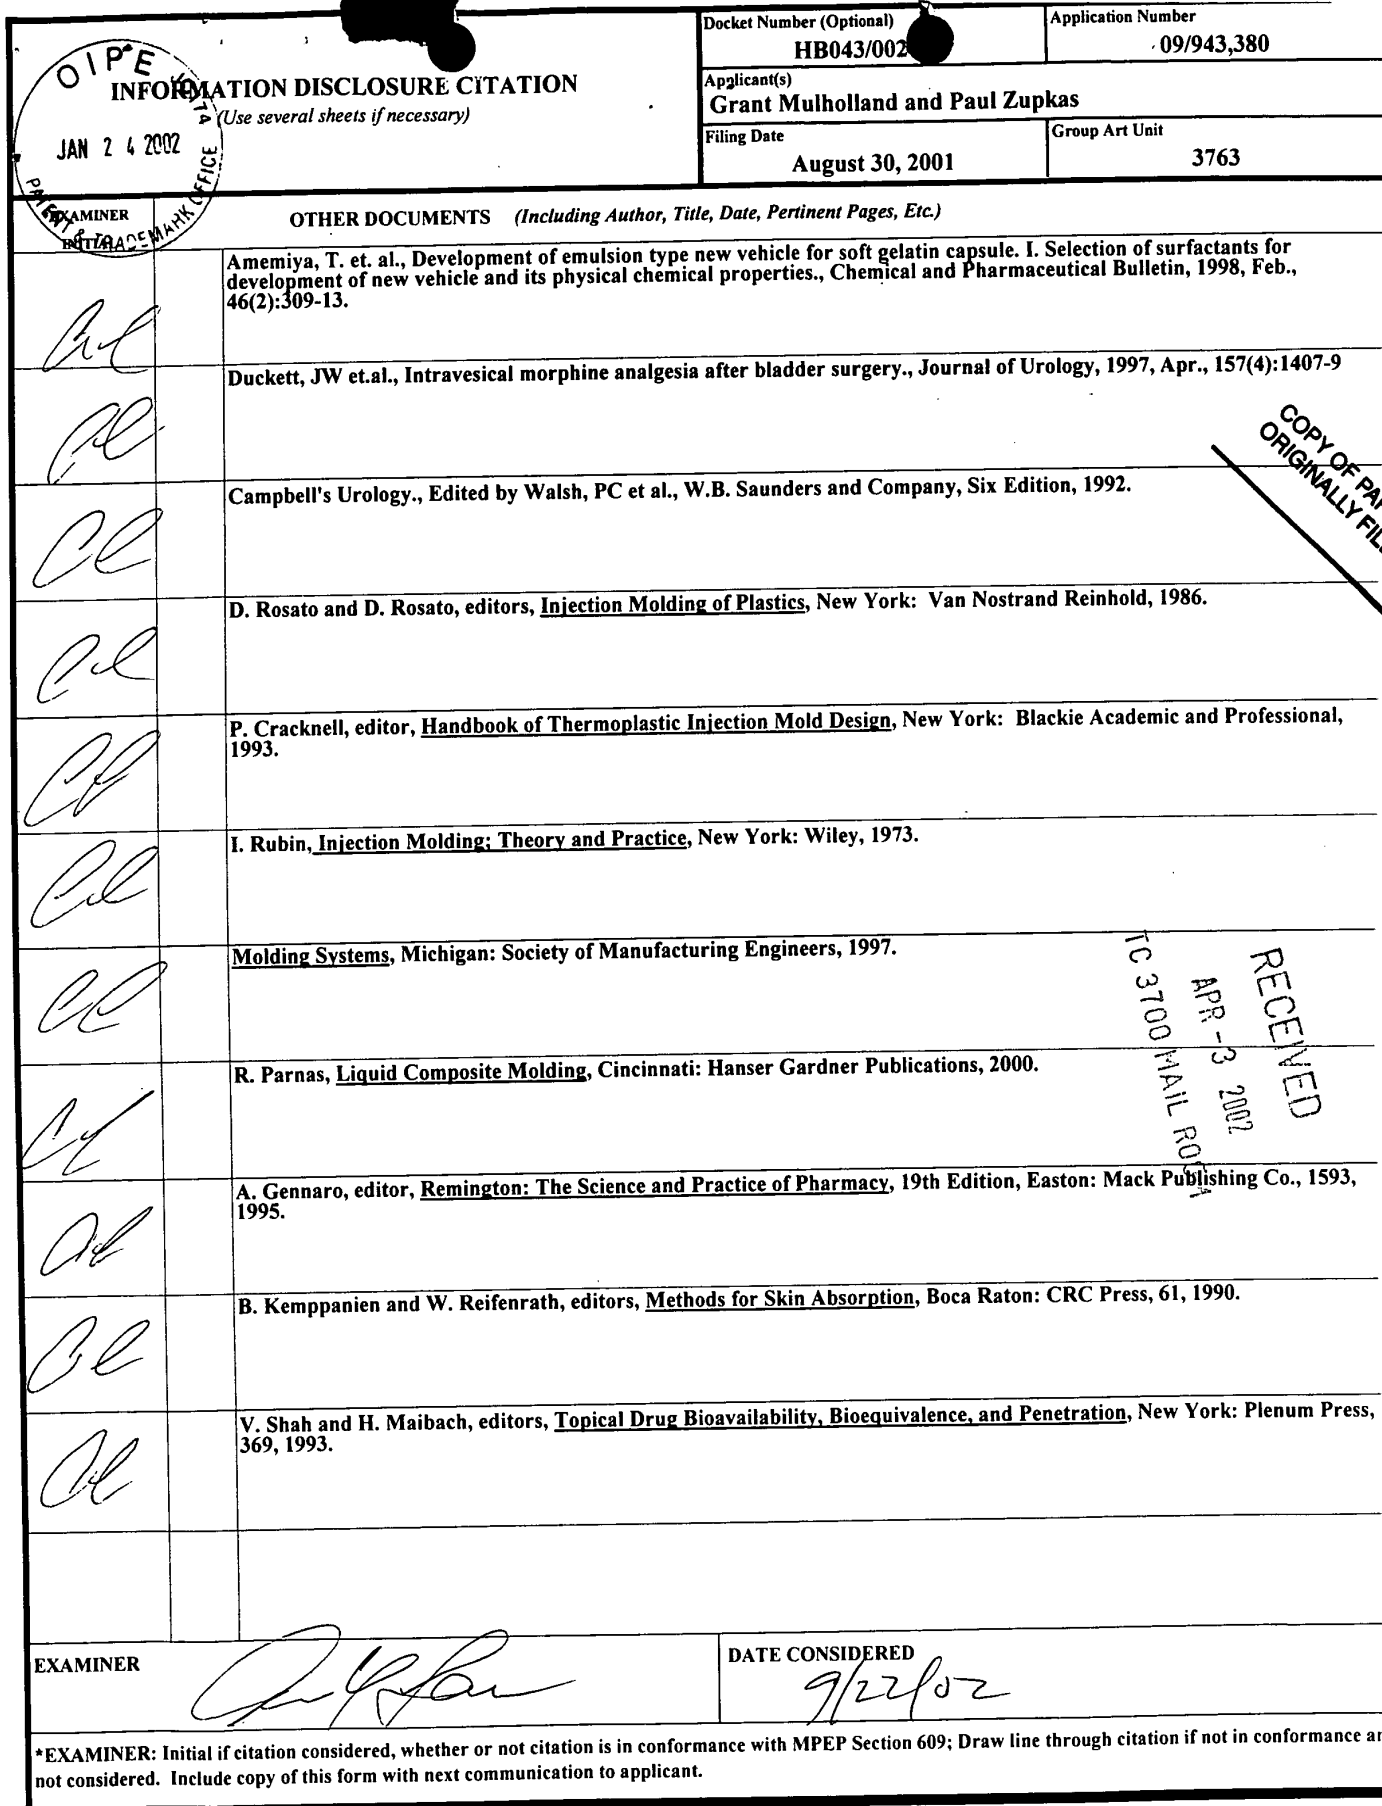 Docket Number (Optional)
HB043/002
Application Number
09/943,380
OIPE
JAN 2 4 2002
PATENT & TRADEMARK OFFICE
INFORMATION DISCLOSURE CITATION
(Use several sheets if necessary)
Applicant(s)
Grant Mulholland and Paul Zupkas
Filing Date
August 30, 2001
Group Art Unit
3763
EXAMINER
INITIAL
OTHER DOCUMENTS (Including Author, Title, Date, Pertinent Pages, Etc.)
Amemiya, T. et. al., Development of emulsion type new vehicle for soft gelatin capsule. I. Selection of surfactants for
development of new vehicle and its physical chemical properties., Chemical and Pharmaceutical Bulletin, 1998, Feb.,
46(2):309-13.
Duckett, JW et.al., Intravesical morphine analgesia after bladder surgery., Journal of Urology, 1997, Apr., 157(4):1407-9
COPY OF PAP
ORIGINALLY FILE
Campbell's Urology., Edited by Walsh, PC et al., W.B. Saunders and Company, Six Edition, 1992.
D. Rosato and D. Rosato, editors, Injection Molding of Plastics, New York: Van Nostrand Reinhold, 1986.
P. Cracknell, editor, Handbook of Thermoplastic Injection Mold Design, New York: Blackie Academic and Professional,
1993.
I. Rubin, Injection Molding; Theory and Practice, New York: Wiley, 1973.
Molding Systems, Michigan: Society of Manufacturing Engineers, 1997.
RECEIVED
APR -3 2002
TC 3700 MAIL ROOM
R. Parnas, Liquid Composite Molding, Cincinnati: Hanser Gardner Publications, 2000.
A. Gennaro, editor, Remington: The Science and Practice of Pharmacy, 19th Edition, Easton: Mack Publishing Co., 1593,
1995.
B. Kemppanien and W. Reifenrath, editors, Methods for Skin Absorption, Boca Raton: CRC Press, 61, 1990.
V. Shah and H. Maibach, editors, Topical Drug Bioavailability, Bioequivalence, and Penetration, New York: Plenum Press,
369, 1993.
EXAMINER
DATE CONSIDERED
9/22/02
*EXAMINER: Initial if citation considered, whether or not citation is in conformance with MPEP Section 609; Draw line through citation if not in conformance an
not considered. Include copy of this form with next communication to applicant.